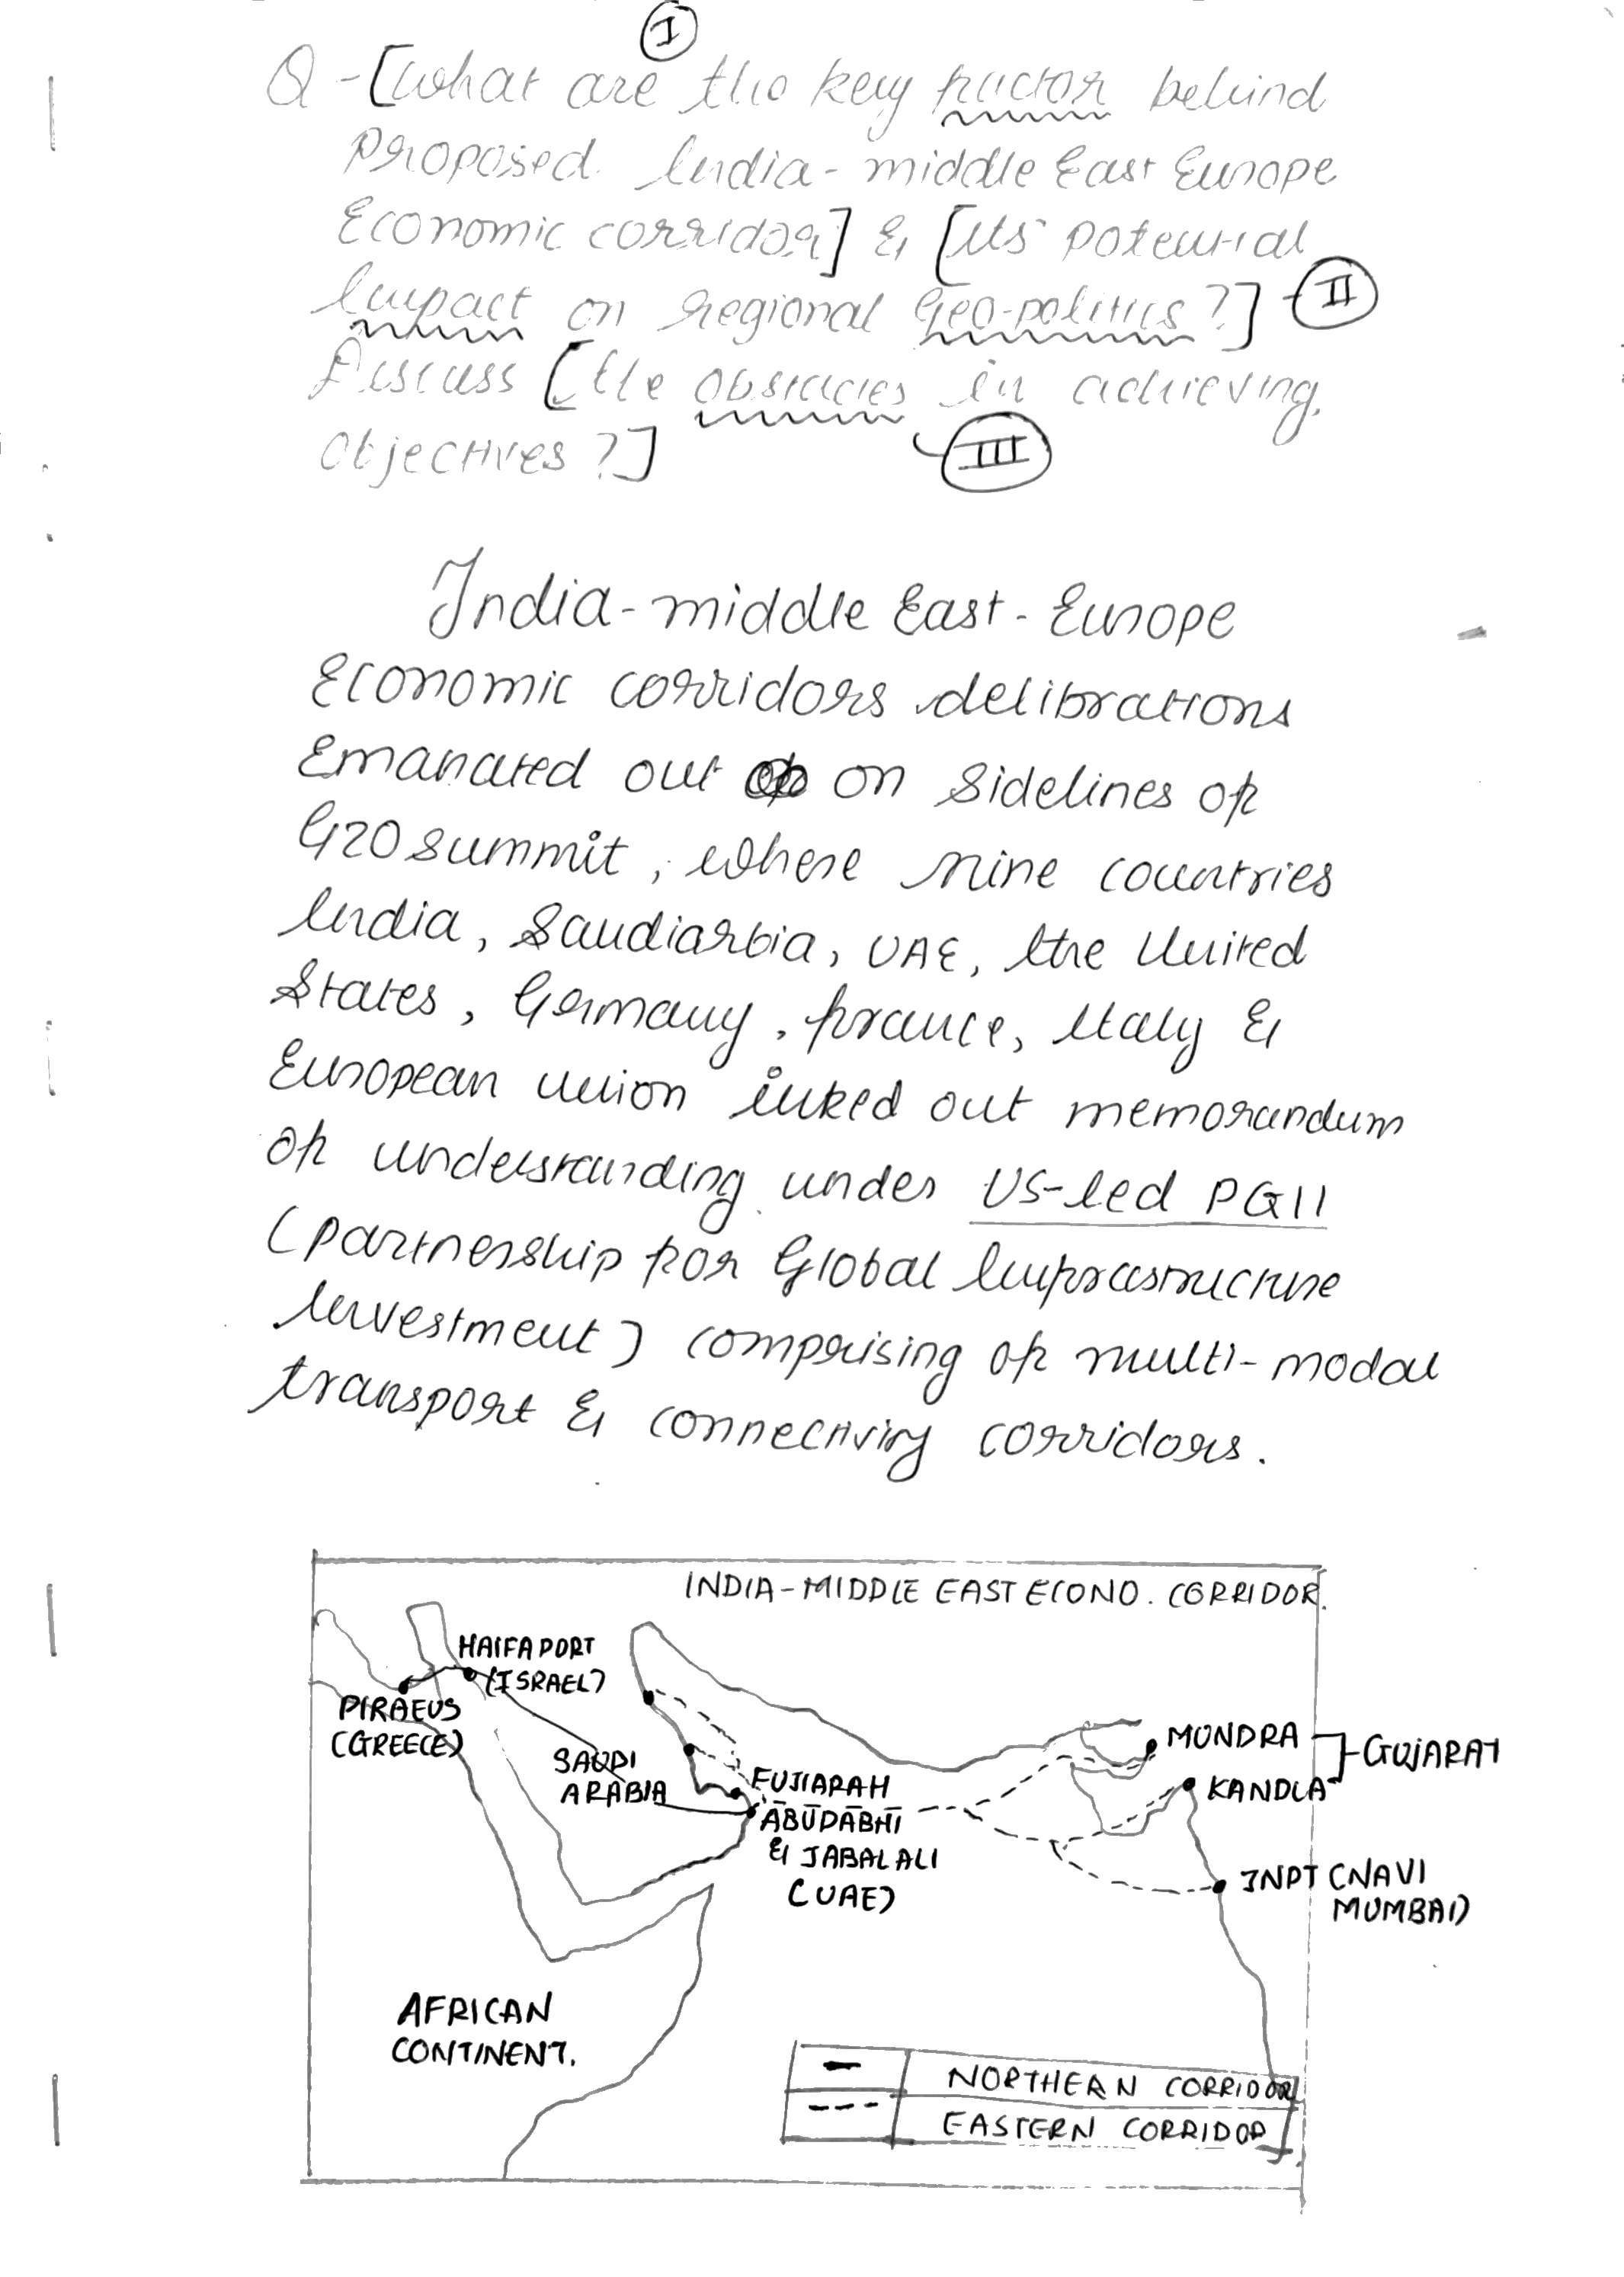 I
Q - [What are the key factor behind
proposed India - middle East Europe
Economic corridor] & [its potential
Impact on regional Geo-politics?] - II
Discuss [the obstacles in achieving
objectives?] III
India - middle East - Europe
Economic corridors delibrations
Emanated out on sidelines of
G20 summit, where nine countries
India, Saudiarbia, UAE, the United
States, Germany, france, Italy &
European union inked out memorandum
of understanding under US-led PGII
(partnership for Global Infrastructure
Investment) comprising of multi-modal
transport & connectivity corridors.
INDIA - MIDDLE EAST ECONO. CORRIDOR.
HAIFA PORT
(ISRAEL)
PIRAEUS
(GREECE)
SAUDI
ARABIA
FUJIARAH
ABUDABHI
& JABALALI
(UAE)
MUNDRA
KANDLA
GUJARAT
JNPT (NAVI
MUMBAI)
AFRICAN
CONTINENT.
NORTHERN CORRIDOR
EASTERN CORRIDOR